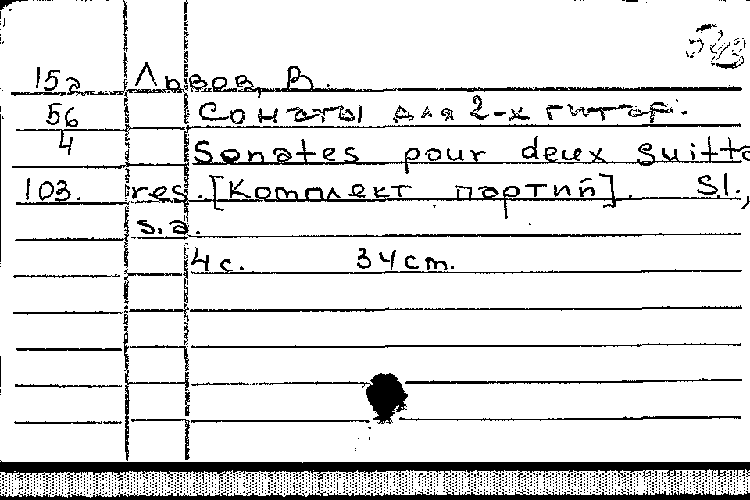 15а Львов, В.
56 Сонаты для 2-х гитар.
4 Sonates pour deux guitta
103. res. [Комплект партий]. S.l.,
s.a.
4с. 34cm.